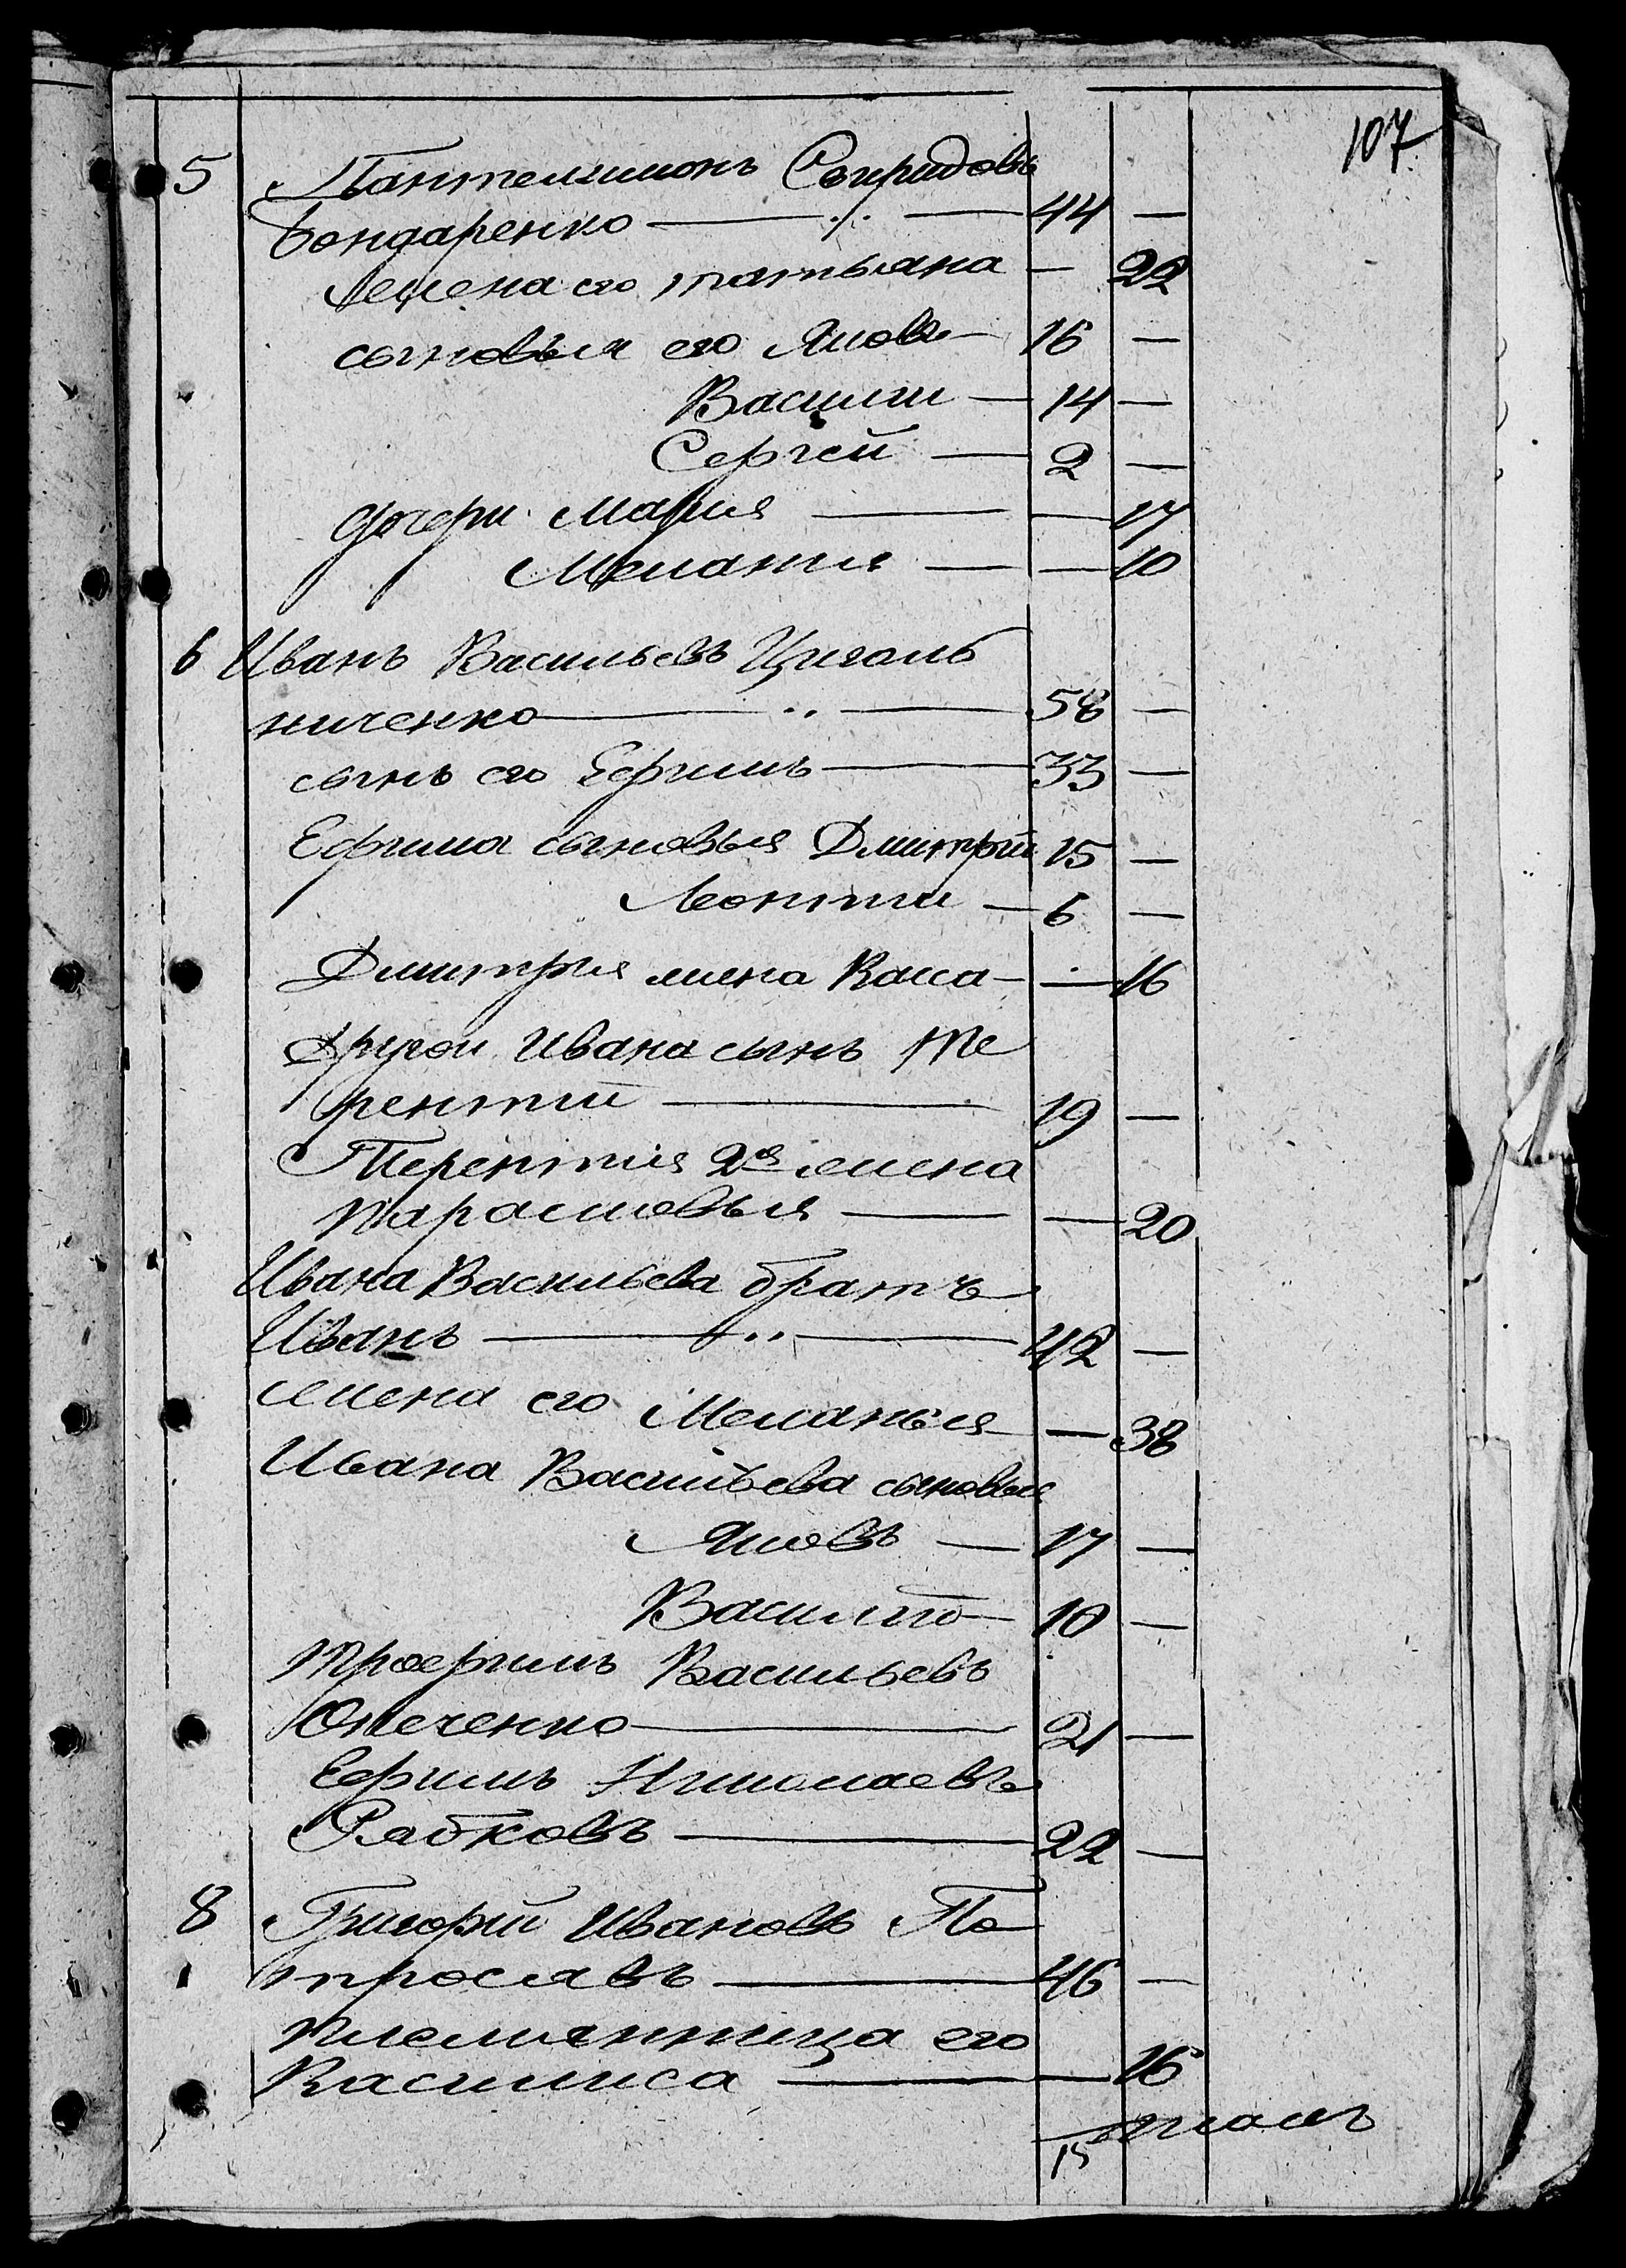 107
5 Пантелимонъ Свиридовъ
Бондаренко — 44 —
Жена его татьяна — 22
сыновья его Яковъ — 16 —
Василий — 14 —
Сергей — 2 —
дочери Мария — — 17
Мелания — — 10
6 Иванъ Васильевъ Циголь
ниченко — 58 —
сынъ его Ефимъ — 33 —
Ефима сыновья Дмитрий 15 —
Леонтий — 6 —
Дмитрия жена Васса — — 16
Другой Ивана сынъ Те
рентий — 19 —
Терентия 2я жена
Парасковья — — 20
Ивана Васильева братъ
Иванъ — 42 —
жена его Меланья — 38
Ивана Васильева сыновья
Яковъ — 17 —
Василий — 10 —
Трофимъ Васильевъ
— 21 —
Ефимъ Николаевъ
Рябковъ — 22 —
8 Григорий Ивановъ По
— 46 —
племянница его
Василиса — — 16
15